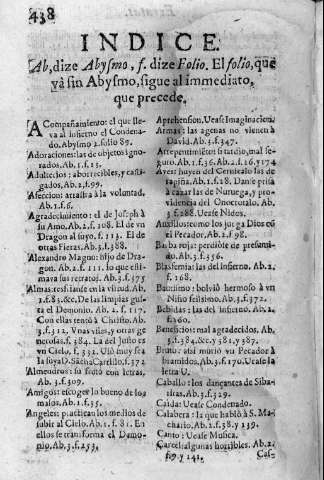 438
INDICE.
Ab, dize Abysmo, f. dize Folio. El folio, que
và sin Abysmo, sigue al immediato,
que precede.
ACompañamiento: el que lle-
va al Infierno el Condena-
do. Abysmo 2. folio 89.
Adoraciones: las de objetos igno-
rados. Ab. 1. f. 15.
Adaltecios: aborrecibles, y casti-
gados. Ab. 2. f. 99.
Afeccion: arrastra à la voluntad.
Ab. 1. f. 6.
Agradecimiento: el de Joseph à
su Amo. Ab. 2. f. 108. El de vn
Dragon al suyo. f. 113. El de
otras Fieras. Ab. 3. f. 388.
Alexandro Magno: hijo de Dra-
gon. Ab. 2. f. 111. lo que esti-
mava sus retratos. Ab. 3. f. 375
Almas: resistanse en la virtud. Ab.
1. f. 85. &c. De las limpias gus-
ta el Demonio. Ab. 2. f. 117.
Con ellas rentò à Christo. Ab.
3. f. 312. Vnas viles, y otras ge-
nerosas. f. 384. La del Justo es
vn Cielo. f. 332. Viò muy fea
la suya D. Sacha Carrillo. f. 372
Almendros: su flotò con letras.
Ab. 3. f. 309.
Amigos: escoger lo bueno de los
malos. Ab. 1. f. 35.
Angeles: practican los medios de
subir al Cielo. Ab. 1. f. 81. En
ellos se transforma el Demo-
nio. Ab. 3. f. 253.
Aprehension. Vease Imaginacion.
Armas: las agenas no vienen à
David. Ab. 3. f. 347.
Arrepentimiento: si tardio, mal se-
guro. Ab. 1. f. 36. Ab. 2. f. 16. y 174
Aves: huyen del Cernicalo las de
rapiña. Ab. 1. f. 28. Danse prisa
à cazar las de Nuruega, y pro-
videncia del Onocrotalo. Ab.
3. f. 288. Vease Nidos.
Auxilios: como los jozga Dios co
el Pecador. Ab. 2. f. 98.
Barba roja: perdiòle de presumi-
do. Ab. 3. f. 356.
Blasfemias: las del Infierno. Ab. 2.
f. 168.
Bautismo: bolviò hermoso à vn
Niño feissimo. Ab. 3. f. 372.
Bebidas: las del Infierno. Ab. 2.
f.
Beneficios: mal agradecidos. Ab.
3. f. 384. &c. y 381. y 387.
Bruto: assi muriò vn Pecador à
bramidos. Ab. 3. f. 170. Vease la
letra V.
Caballo: los dançantes de Siba-
ritas. Ab. 3. f. 329.
Caida: Vease Condenado.
Calabera: la que hablò à S. Ma-
chario. Ab. 2. f. 38. y 139.
Canto: Vease Musica.
Carcel: algunas horribles. Ab. 2.
f. 9. y 141.